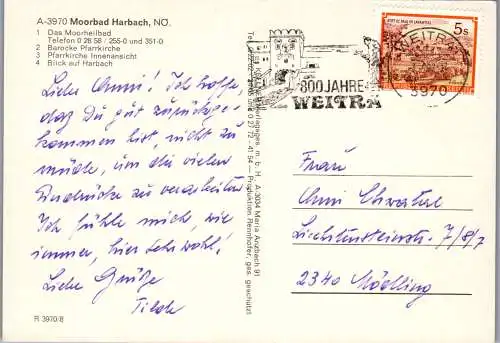 A-3970 Moorbad Harbach, NÖ.
1 Das Moorheilbad
Telefon 0 28 58 / 255-0 und 351-0
2 Barocke Pfarrkirche
3 Pfarrkirche Innenansicht
4 Blick auf Harbach
Liebe Anni! Ich hoffe,
daß Du gut zurückge-
kommen bist, nicht zu
müde, um die vielen
Eindrücke zu verarbeiten
Ich fühle mich, wie
immer, hier sehr wohl!
Liebe Grüße
R 3970/8
m. b. H., A-3034 Maria Anzbach 91
0 27 72 - 41 54 — Produktion Rennhofer, ges. geschützt
800 JAHRE
WEITRA
WEITRA
3970
5s
Frau
Anni
Liechtensteinstr. 7/8/7
2340 Mödling